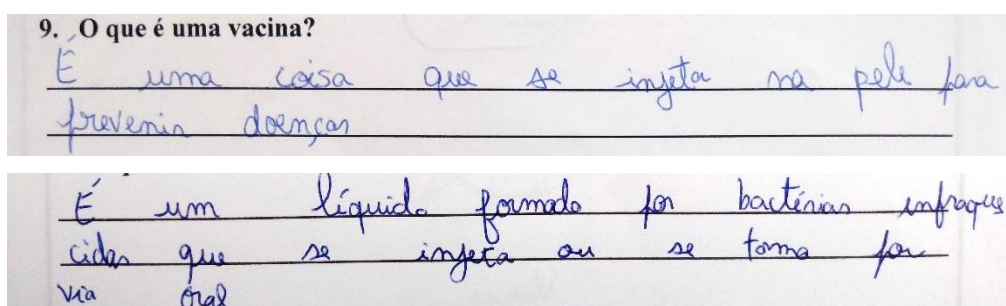 9. O que é uma vacina?
É uma coisa que se injeta na pele para
prevenir doenças
É um líquido formado por bactérias infraque
cidas que se injeta ou se toma por
via oral